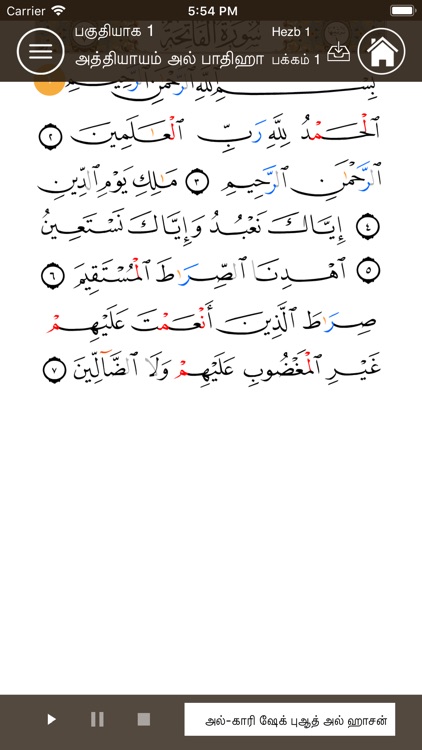 Carrier 5:54 PM
பகுதியாக 1 Hezb 1
அத்தியாயம் அல் பாதிஹா பக்கம் 1
سُورَةُ الفَاتِحَةِ
بِسْمِ ٱللَّهِ ٱلرَّحْمَٰنِ ٱلرَّحِيمِ
ٱلْحَمْدُ لِلَّهِ رَبِّ ٱلْعَٰلَمِينَ ٢
ٱلرَّحْمَٰنِ ٱلرَّحِيمِ ٣ مَٰلِكِ يَوْمِ ٱلدِّينِ
٤ إِيَّاكَ نَعْبُدُ وَإِيَّاكَ نَسْتَعِينُ
٥ ٱهْدِنَا ٱلصِّرَٰطَ ٱلْمُسْتَقِيمَ ٦
صِرَٰطَ ٱلَّذِينَ أَنْعَمْتَ عَلَيْهِمْ
غَيْرِ ٱلْمَغْضُوبِ عَلَيْهِمْ وَلَا ٱلضَّآلِّينَ ٧
அல்-காரி ஷேக் புஆத் அல் ஹாசன்